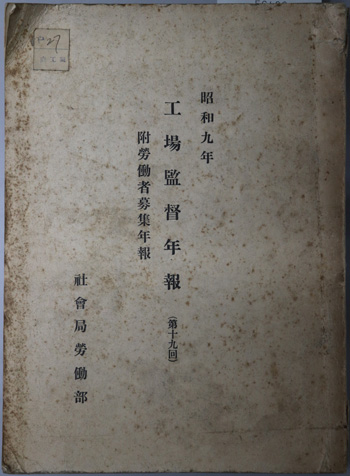 昭和九年
工場監督年報（第十九回）
附勞働者募集年報
社會局勞働部
27